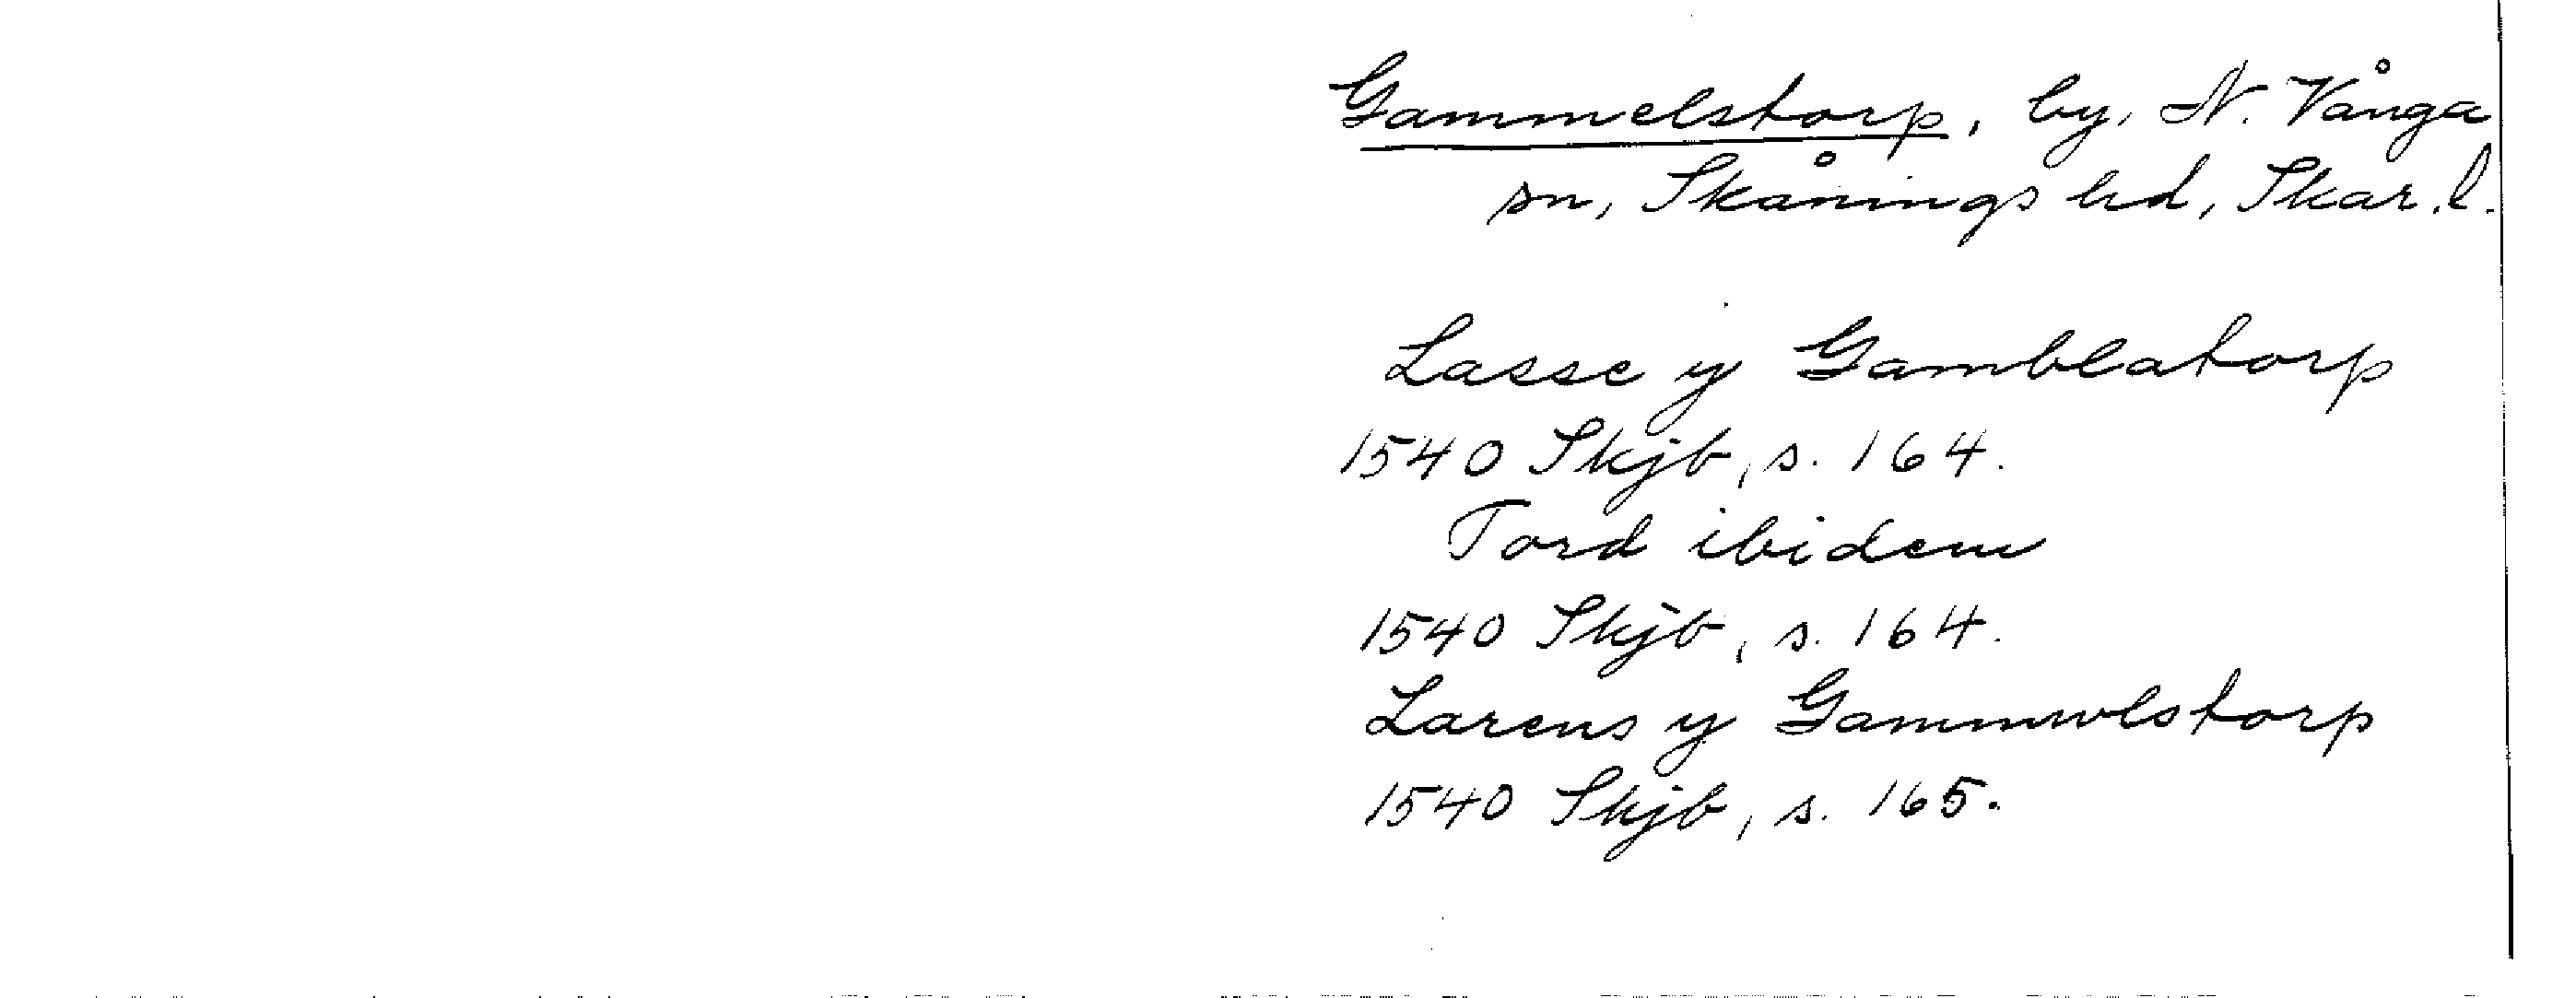 Gammelstorp, by, N. Vånga
sn, Skånings hd, Skar. l.
Lasse y Gamblatorp
1540 Skjb, s. 164.
Tord ibidem
1540 Skjb, s. 164.
Larens y Gammwlstorp
1540 Skjb, s. 165.